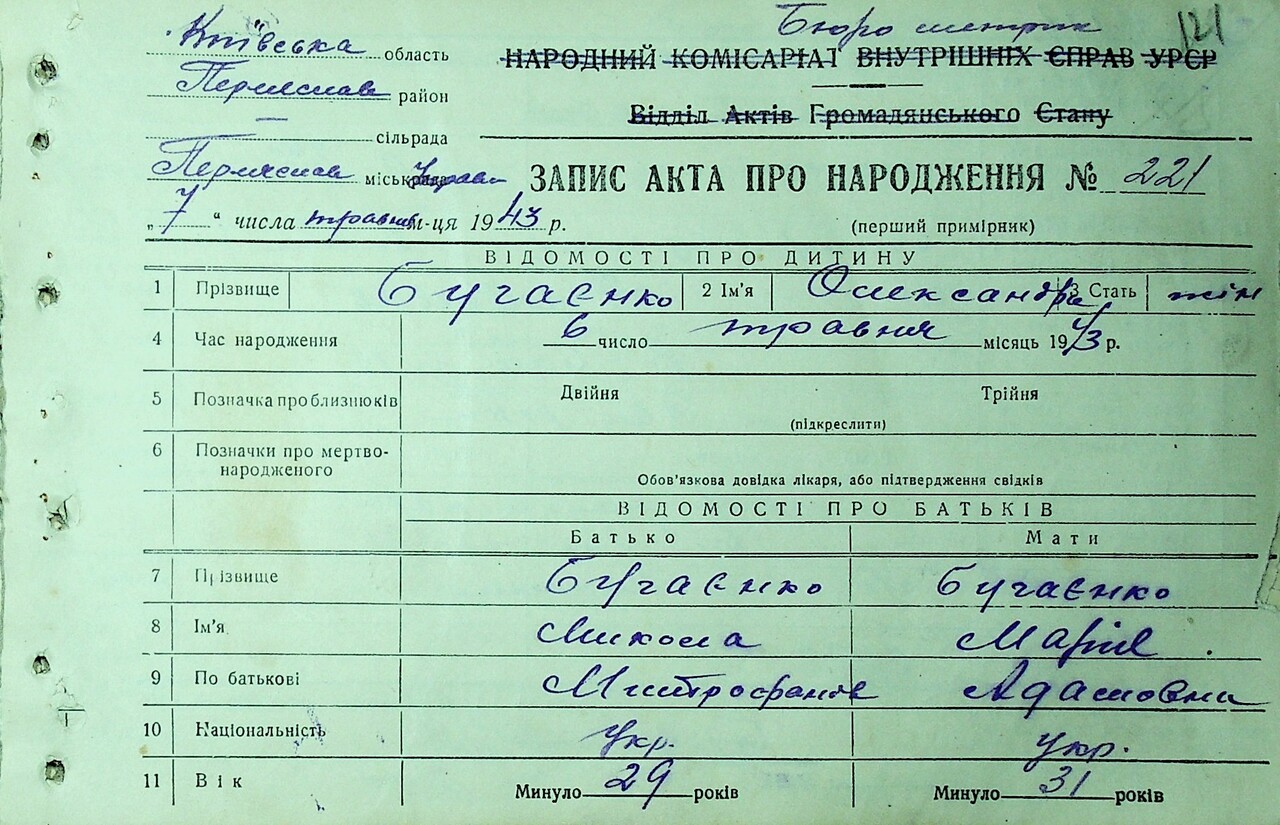 Київська область
Переяслав район
— сільрада
Переяслав міськ управа
„ 7 “ числа травня м-ця 1943 р.
Бюро метрик
121
НАРОДНИЙ КОМІСАРІАТ ВНУТРІШНІХ СПРАВ УРСР
Відділ Актів Громадянського Стану
ЗАПИС АКТА ПРО НАРОДЖЕННЯ № 221
(перший примірник)
ВІДОМОСТІ ПРО ДИТИНУ
1 Прізвище Бугаєнко 2 Ім'я Олександра 3 Стать жін
4 Час народження 6 число травня місяць 1943 р.
5 Позначка про близнюків Двійня Трійня
(підкреслити)
6 Позначки про мертво-
народженого
Обов'язкова довідка лікаря, або підтвердження свідків
ВІДОМОСТІ ПРО БАТЬКІВ
Батько Мати
7 Прізвище Бугаєнко Бугаєнко
8 Ім'я Микола Марія
9 По батькові Митрофанов Адамовна
10 Національність Укр. Укр.
11 Вік Минуло 29 років Минуло 31 років